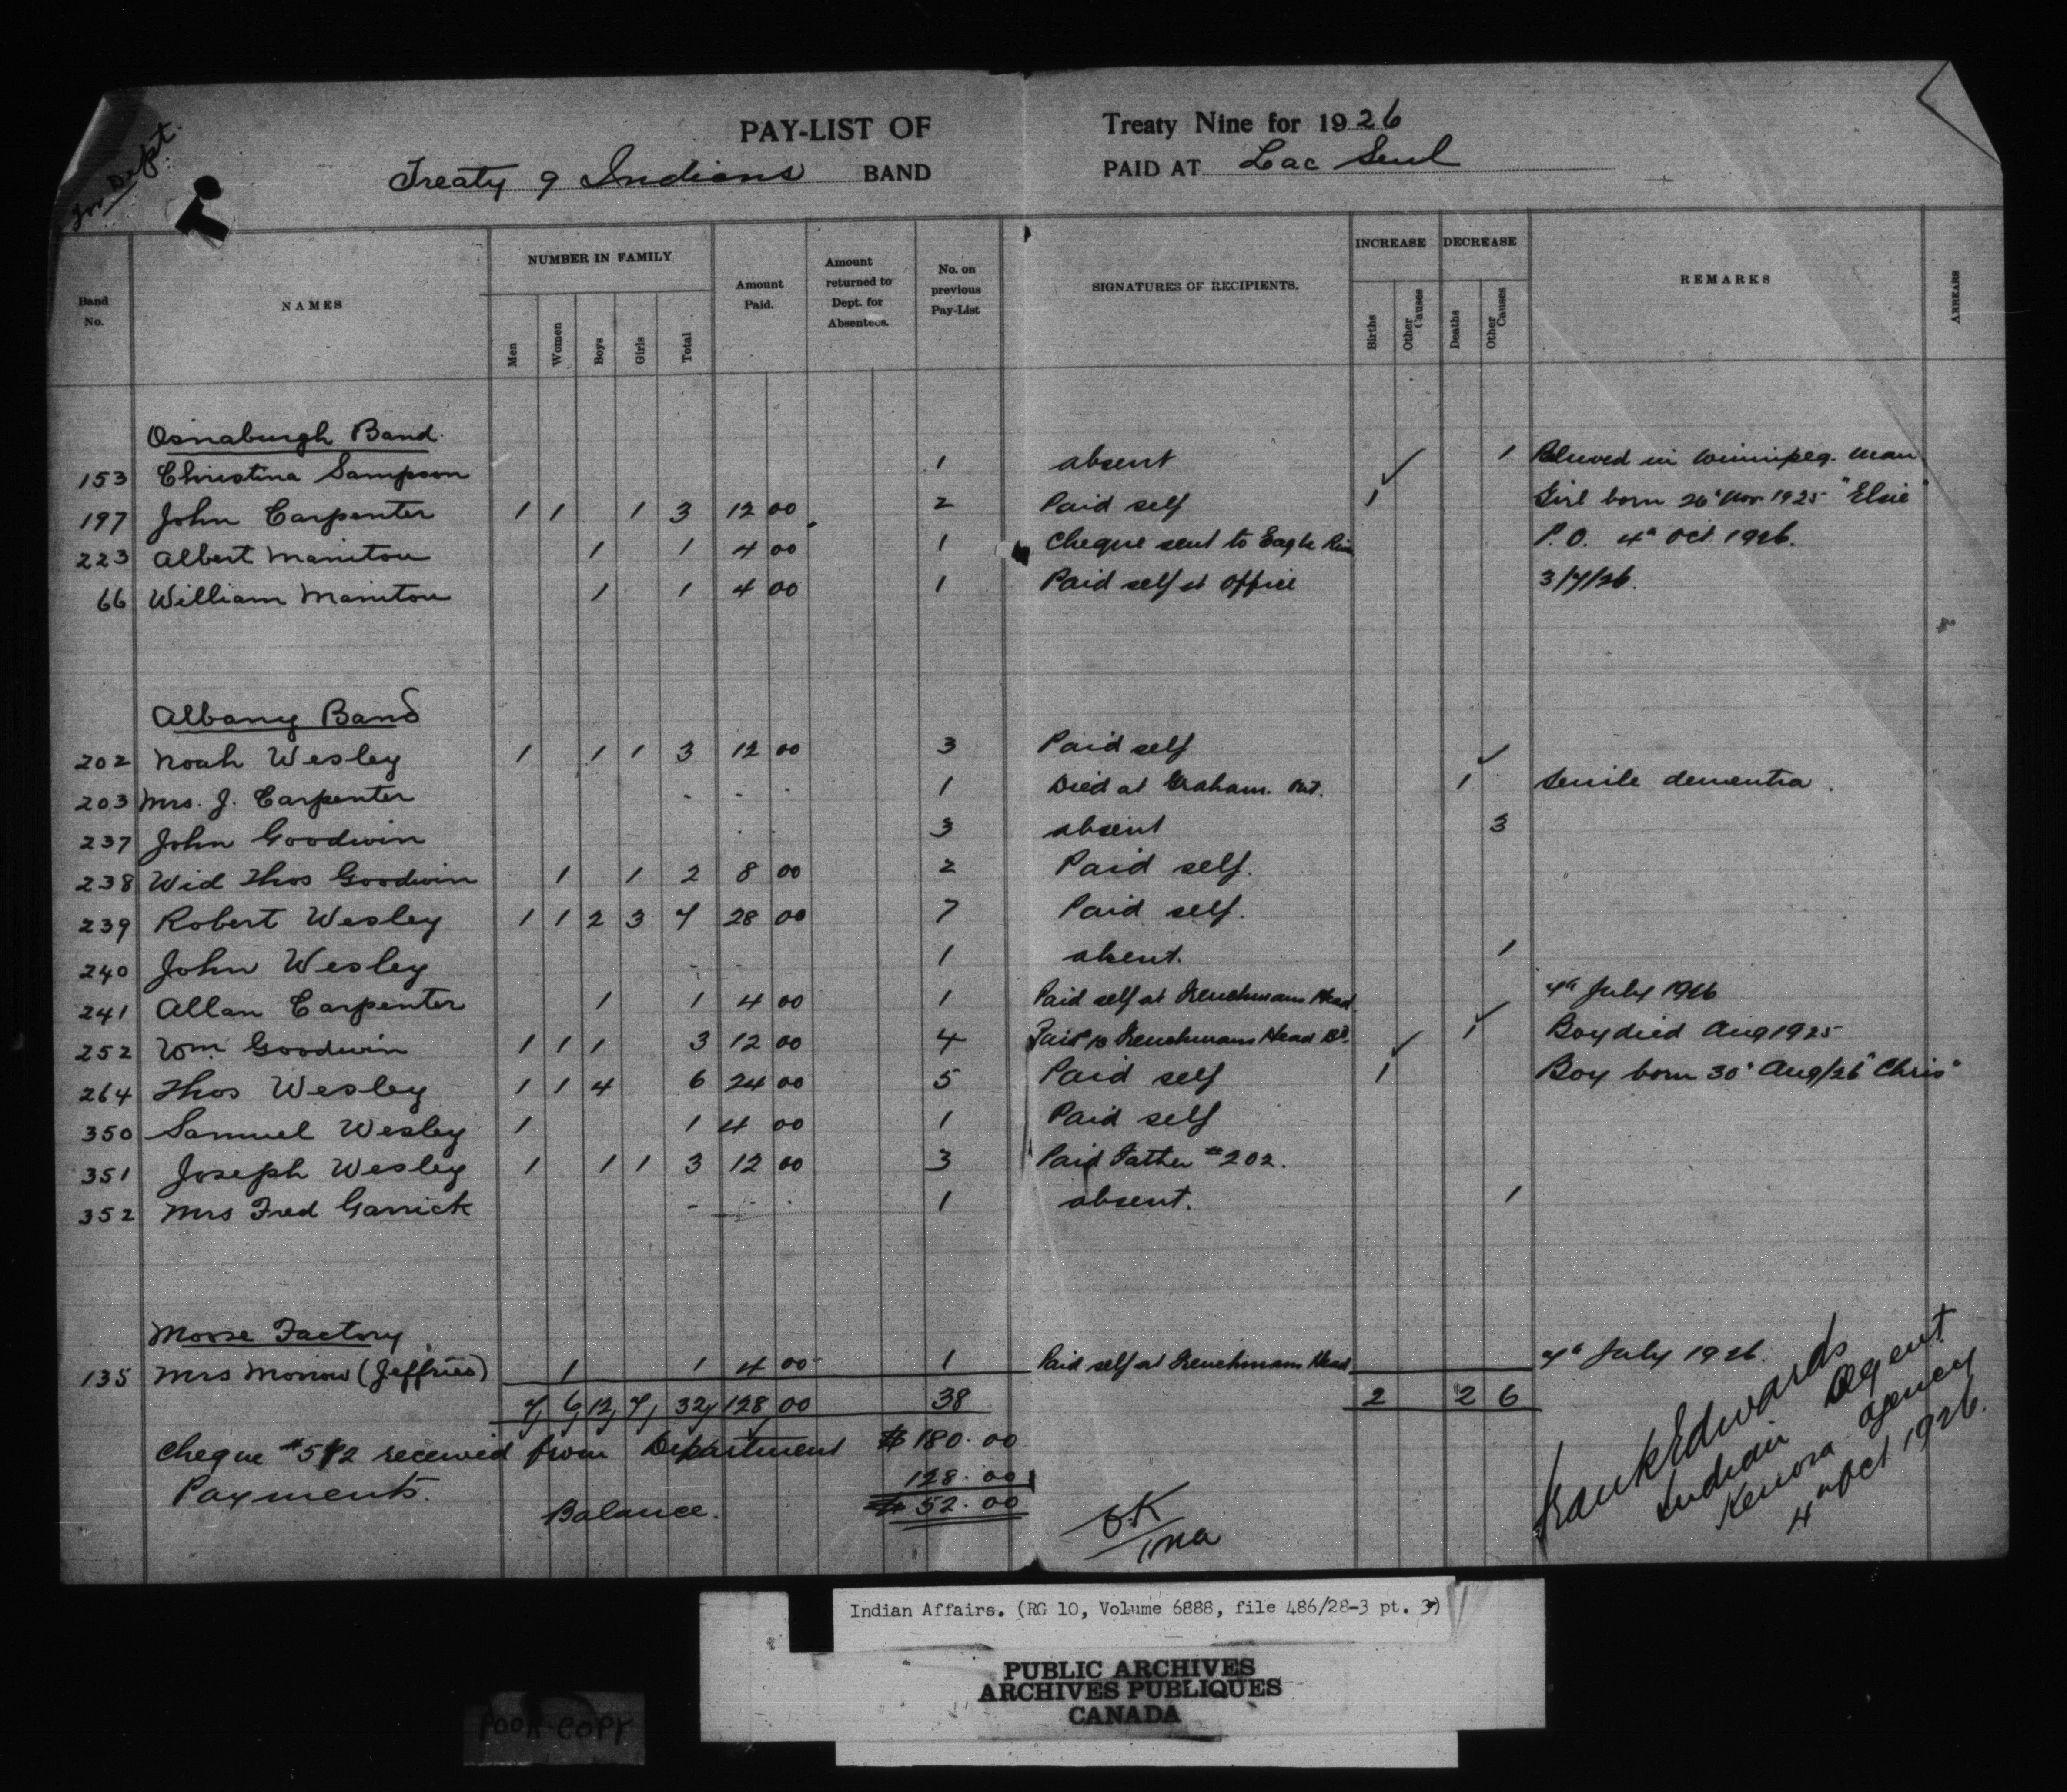 for Dept.
PAY-LIST OF Treaty Nine for 1926
Treaty 9 Indians BAND PAID AT Lac Seul
Band No. NAMES NUMBER IN FAMILY Men Women Boys Girls Total Amount Paid. Amount returned to Dept. for Absentees. No. on previous Pay-List SIGNATURES OF RECIPIENTS. INCREASE Births Other Causes DECREASE Deaths Other Causes REMARKS ARREARS
Osnaburgh Band.
153 Christina Sampson 1 absent 1 in Winnipeg. Man
197 John Carpenter 1 1 1 3 12 00 2 Paid self 1 Girl born 26" Nov 1925 "Elsie"
223 Albert Manitou 1 1 4 00 1 Cheque sent to Eagle P.O. 4" Oct 1926.
66 William Manitou 1 1 4 00 1 Paid self at office 3/7/26.
Albany Band
202 Noah Wesley 1 1 1 3 12 00 3 Paid self
203 Mrs. J. Carpenter - - - 1 Died at Graham. Ont. 1 Senile dementia.
237 John Goodwin 3 absent 3
238 Wid Thos Goodwin 1 1 2 8 00 2 Paid self.
239 Robert Wesley 1 1 2 3 7 28 00 7 Paid self.
240 John Wesley 1 absent. 1
241 Allan Carpenter 1 1 4 00 1 Paid self at Frenchmans Head 7" July 1926
252 Wm Goodwin 1 1 1 3 12 00 4 Paid to Frenchmans Head Bd. 1 Boy died Aug 1925
264 Thos Wesley 1 1 4 6 24 00 5 Paid self 1 Boy born 30" Aug/26 "Chris"
350 Samuel Wesley 1 1 4 00 1 Paid self
351 Joseph Wesley 1 1 1 3 12 00 3 Paid Father #202.
352 Mrs Fred Garrick - 1 absent. 1
Moose Factory
135 Mrs Morrow (Jeffries) 1 1 4 00 1 Paid self at Frenchmans Head 7" July 1926.
7, 6, 12, 7, 32, 128,00 38 2 2 6
Cheque #512 received from Department $180.00
Payments. 128.00
Balance. $52.00
OK
Frank Edwards
Indian Agent
Kenora Agency
4" Oct 1926.
Indian Affairs. (RG 10, Volume 6888, file 486/28-3 pt. 3)
PUBLIC ARCHIVES
ARCHIVES PUBLIQUES
CANADA
POOR COPY